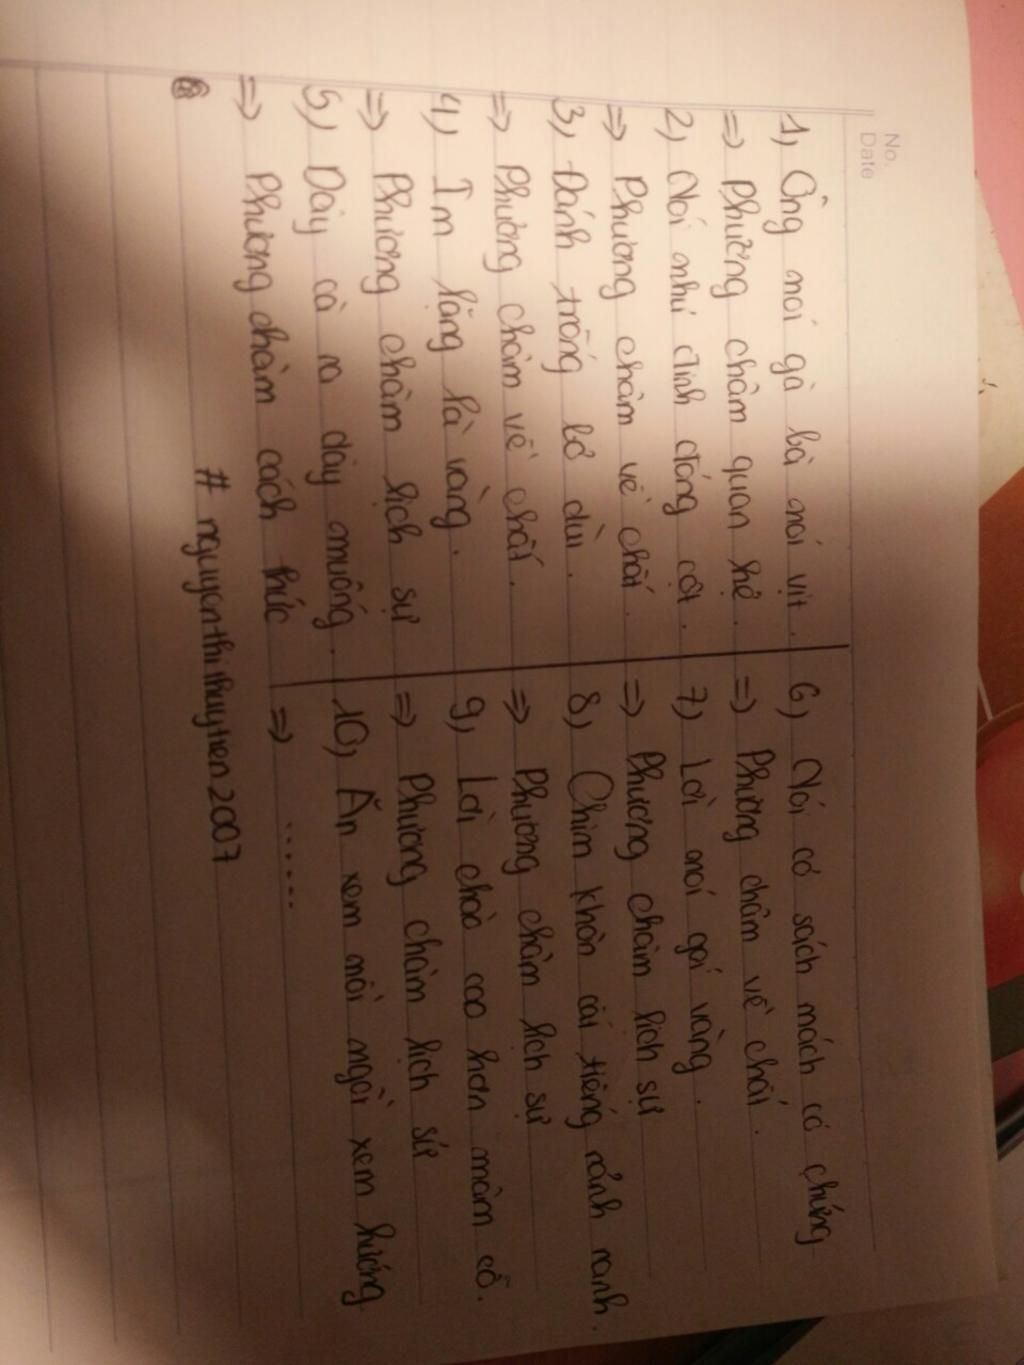 No.
Date
1, Ông nói gà bà nói vịt.
=> Phương châm quan hệ.
2, Nói như đinh đóng cột.
=> Phương châm về chất.
3, Đánh trống lở dùi.
=> Phương châm về chất.
4, Im lặng là vàng.
=> Phương châm lịch sự
5, Dây cà ra dây muống.
=> Phương châm cách thức
6, Nói có sách mách có chứng
=> Phương châm về chất.
7, Lời nói gói vàng.
=> Phương châm lịch sự
8, Chim khôn cái tiếng rảnh ranh.
=> Phương châm lịch sự
9, Lời chào cao hơn mâm cỗ.
=> Phương châm lịch sự
10, Ăn xem nồi ngồi xem hướng
=> ......
# nguyenthithuytien2007